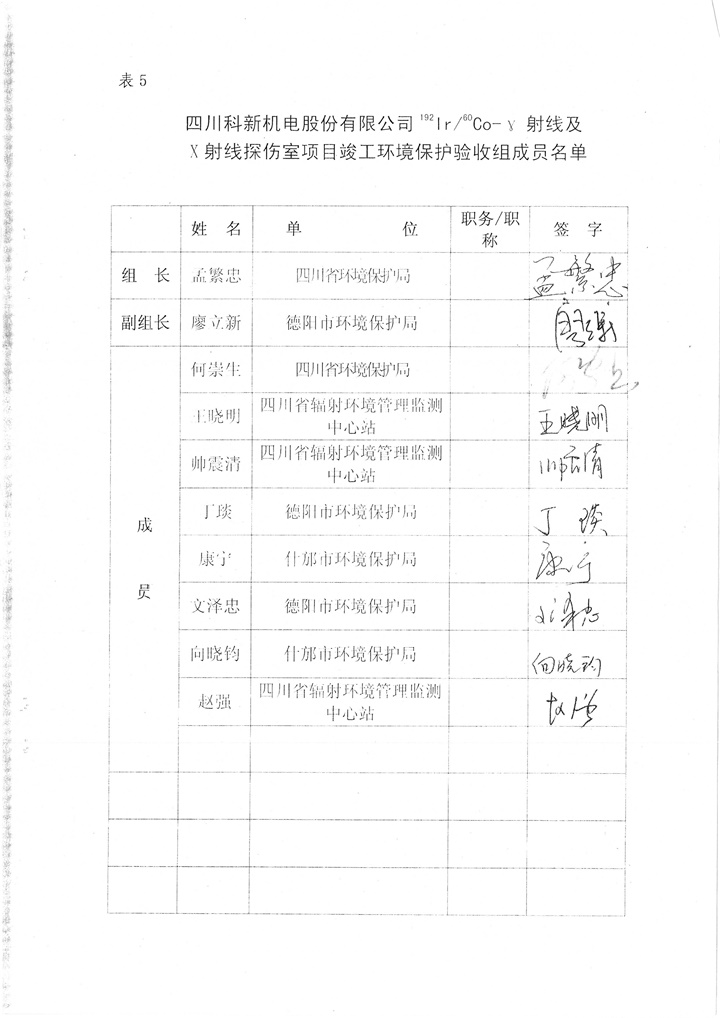 表 5
四川科新机电股份有限公司 ¹⁹²Ir/⁶⁰Co-γ 射线及
X 射线探伤室项目竣工环境保护验收组成员名单
姓 名 单 位 职务/职称 签 字
组 长 孟繁忠 四川省环境保护局 孟繁忠
副组长 廖立新 德阳市环境保护局
成员
何崇生 四川省环境保护局
王晓明 四川省辐射环境管理监测中心站 王晓明
帅震清 四川省辐射环境管理监测中心站 帅震清
丁琰 德阳市环境保护局 丁琰
康宁 什邡市环境保护局 康宁
文泽忠 德阳市环境保护局 文泽忠
向晓钧 什邡市环境保护局 向晓钧
赵强 四川省辐射环境管理监测中心站 赵强